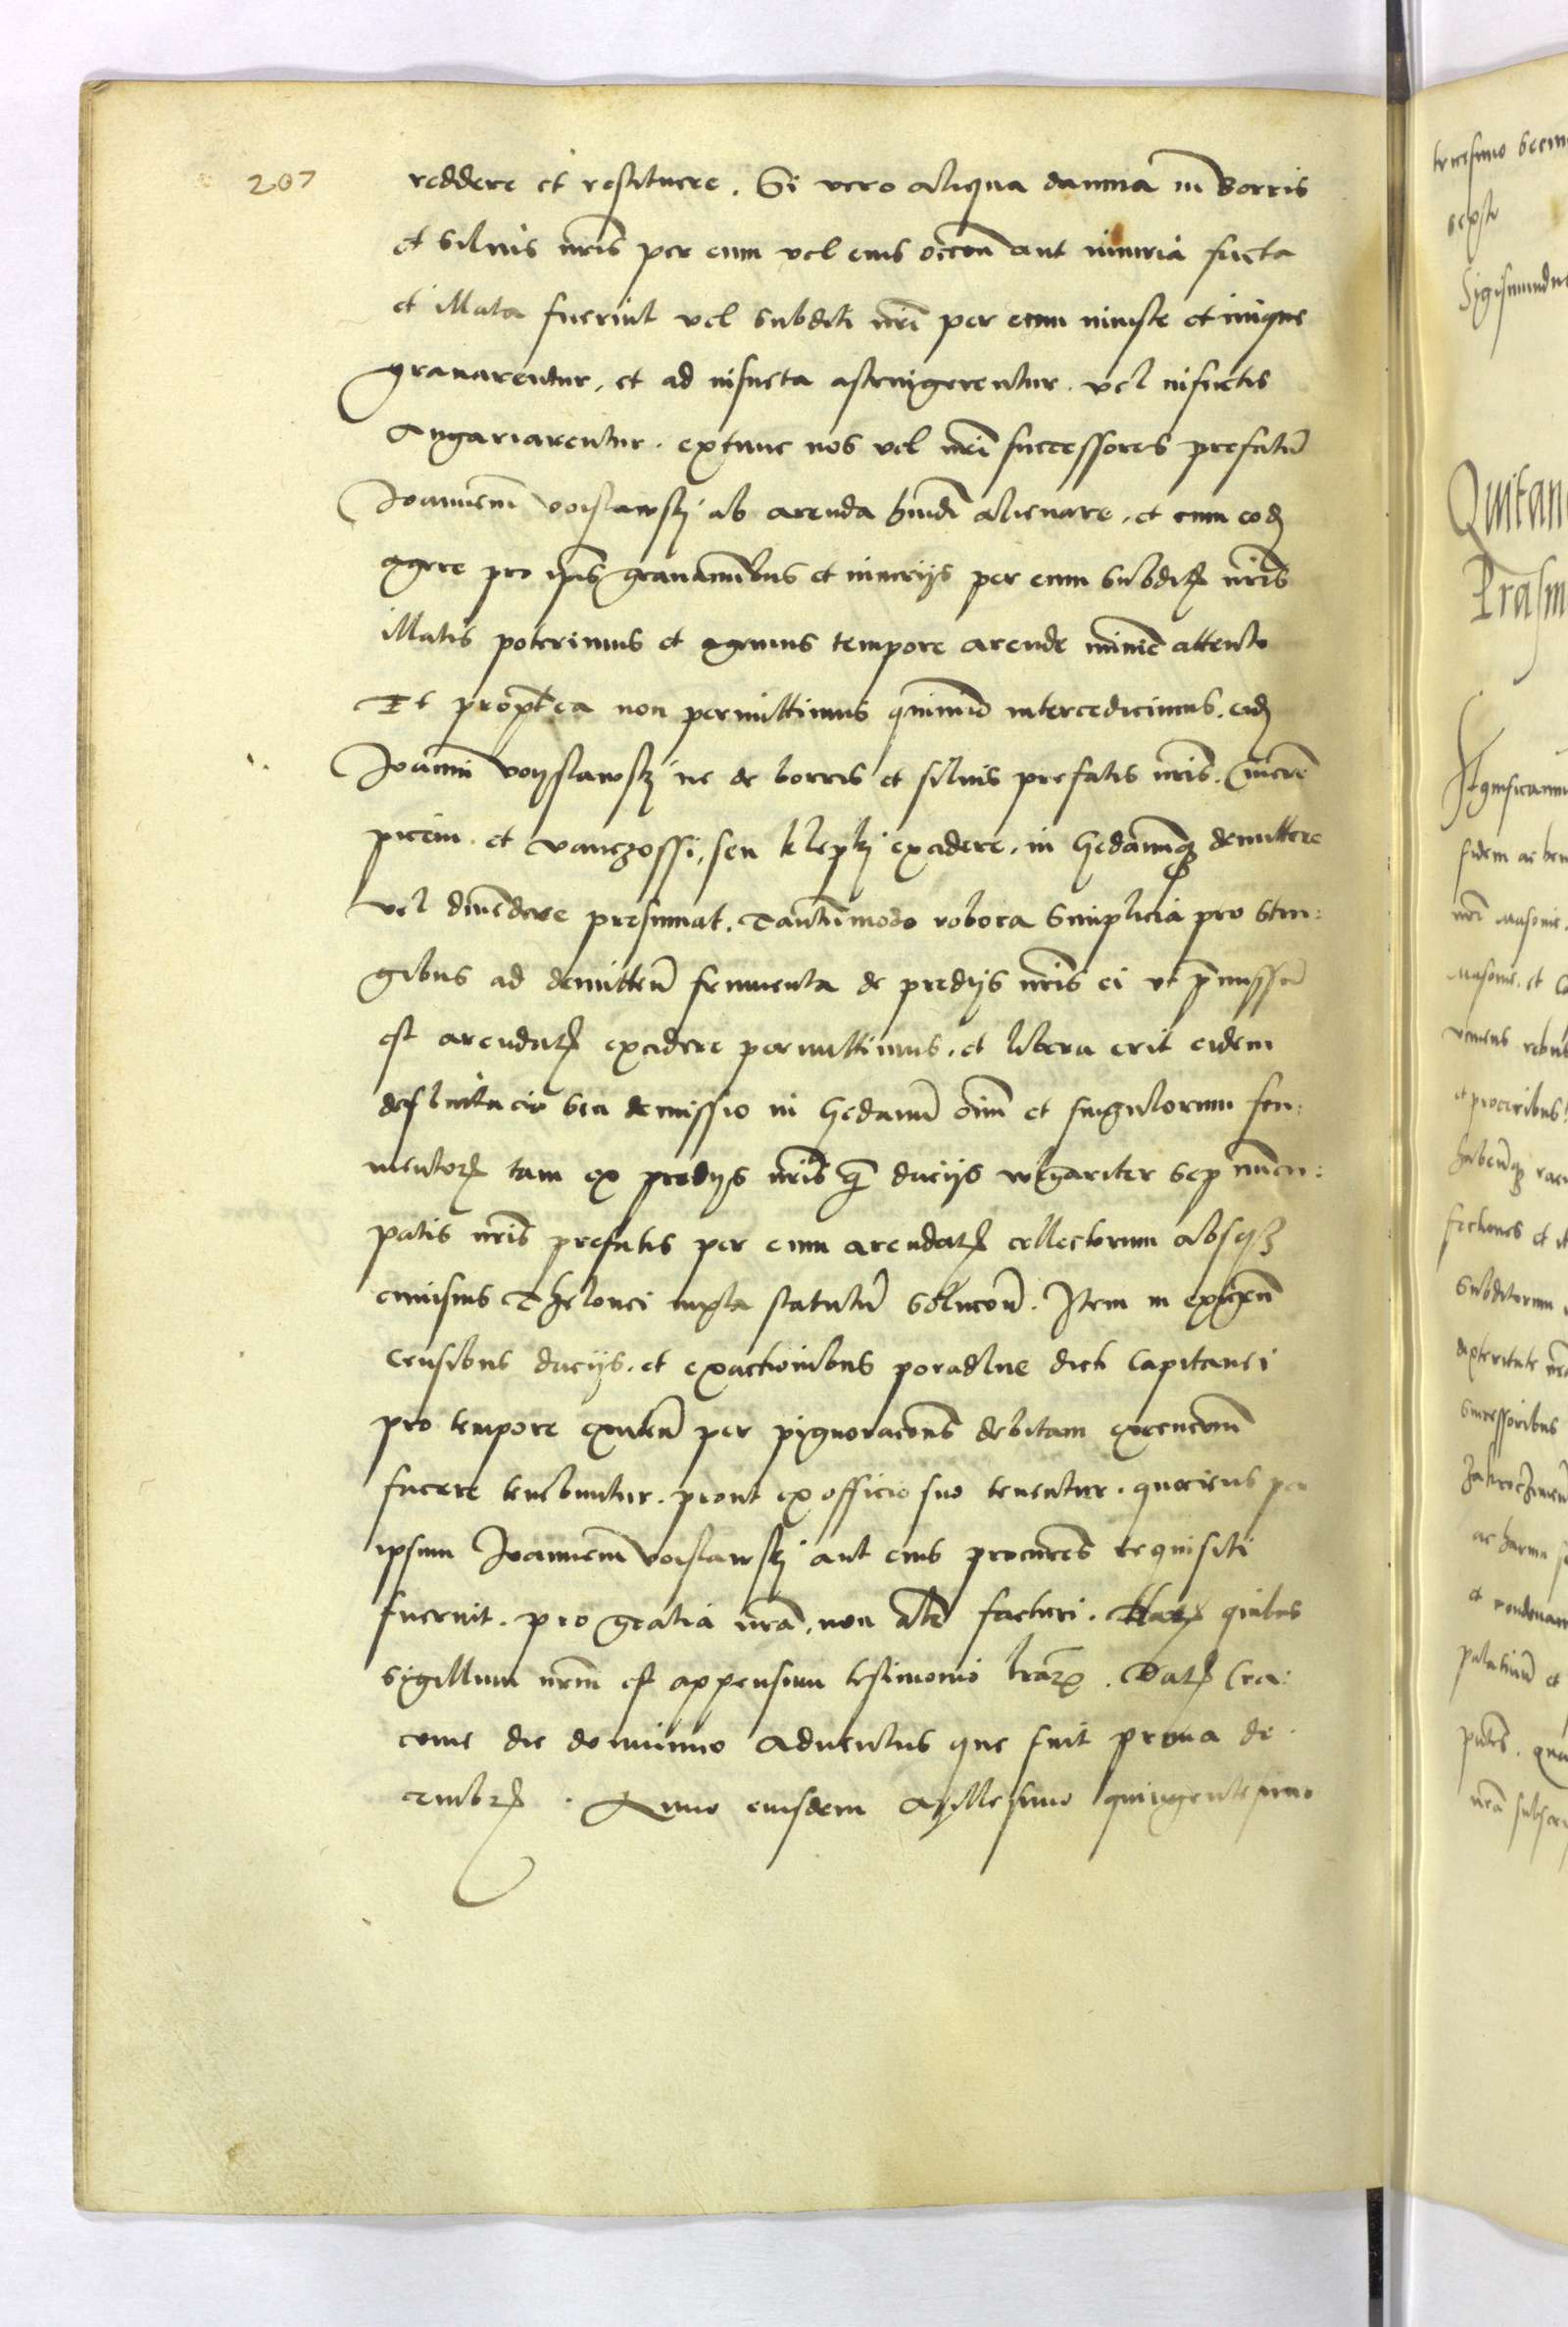 207
reddere et restituere. Si vero aliqua damna in Borris
et silvis nris per eum vel eius occon aut iniuria facta
et illata fuerint vel subditi nri per eum iniuste et inique
gravarentur, et ad insueta astringerentur. vel insuetis
Angariarentur. extunc nos vel nri successores prefatu
Joannem Voislawskj ab arenda alienare, et cum eod
agere pro ipsis gravaminibus et iniurijs per eum subdit nris
illatis poterimus et agemus tempore arende minime attento
Et propterea non permittimus quinimo intercedicimus. eid
Joanni Voyslawskj ne de borris et silvis prefatis nris. Cinere
picem. et vanczossi, seu klepkj excidere, in Gedanumq demittere
vel divendere presumat. Tantummodo robora simplicia pro stru:
gibus ad demitten frumenta de predijs nris ei ut premissu
est arendat excidere permittimus. et libera erit eidem
defluitacio seu demissio in Gedanum oim et singulorum fru:
mentor tam ex predijs nris q dacijs vulgariter sep nuncu:
patis nris prefatis per eum arendat collectorum absq
cuiusvis Thelonei iuxta statutu solucone. Item in exigen
censibus dacijs. et exactionibus poradlne dicti Capitanei
pro tempore existen per pignoracons debitam execucom
facere tenebuntur. prout ex officio suo tenentur. quociens per
ipsum Joannem Voislawskj aut eius procures requisiti
fuerint. pro gratia nra, non alr facturi. Har quibus
sigillum nrm est appensum testimonio lrar. Dat Cra:
covie die dominico Adventus que fuit prima de
cembr. Anno eiusdem Millesimo quingentesimo
tricesimo
sexto
Sigismundus
Quitan
Erasm
Significamus
fidem ac
nri Masovie
Masovie. et
et proceribus
Subditorum
successoribus
palatinu et